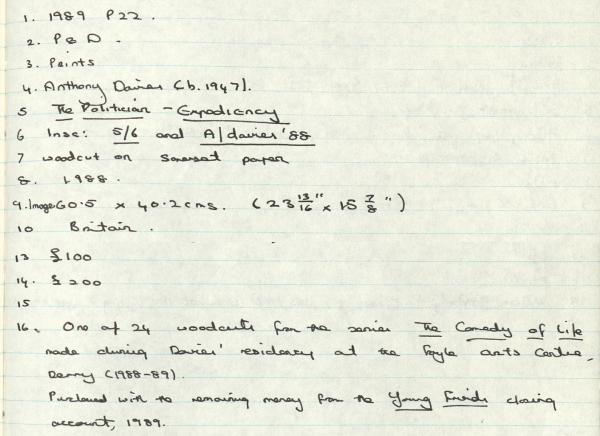 1. 1989 P22.
2. P & D.
3. Prints
4. Anthony Davies (b. 1947).
5 The Politician - Expediency
6 Insc: 5/6 and A/davies '88
7 woodcut on Somerset paper
8. 1988.
9. Image 60.5 x 40.2 cms. (23 13/16" x 15 7/8")
10 Britain.
13 £100
14. £200
15
16. One of 24 woodcuts from the series The Comedy of Life
made during Davies' residency at the Foyle Arts Centre,
Derry (1988-89).
Purchased with the remaining money from the Young Friends closing
account, 1989.